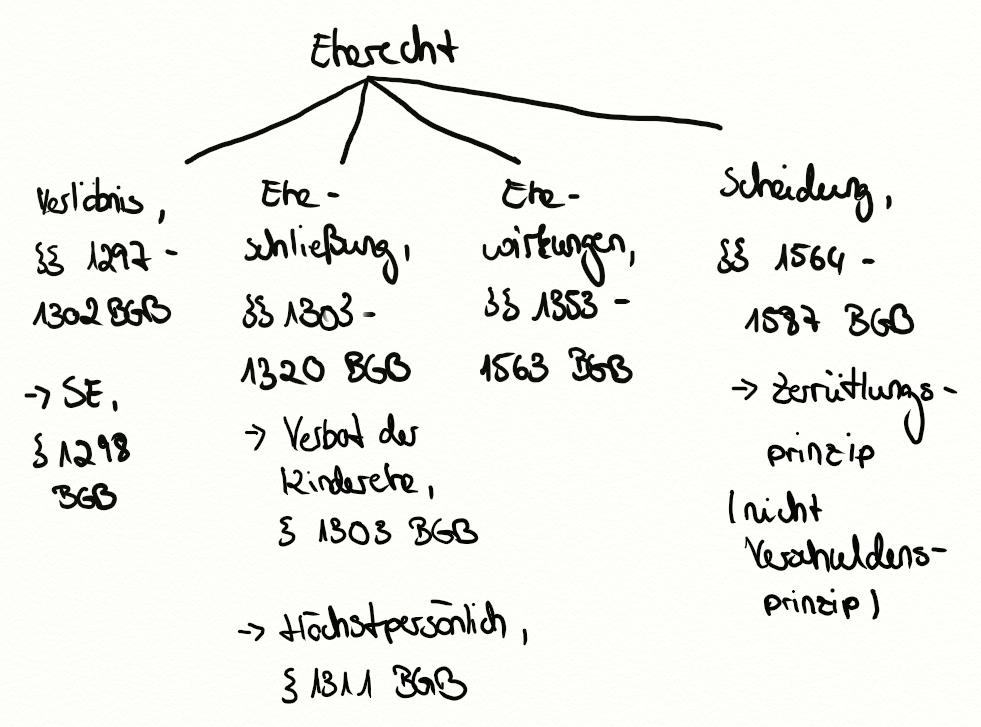 Eherecht
Verlöbnis,
§§ 1297 -
1302 BGB
→ SE,
§ 1298
BGB
Ehe -
schließung,
§§ 1303 -
1320 BGB
→ Verbot der
Kinderehe,
§ 1303 BGB
→ Höchstpersönlich,
§ 1311 BGB
Ehe -
wirkungen,
§§ 1353 -
1563 BGB
Scheidung,
§§ 1564 -
1587 BGB
→ Zerrüttungs -
prinzip
(nicht
Verschuldens -
prinzip)